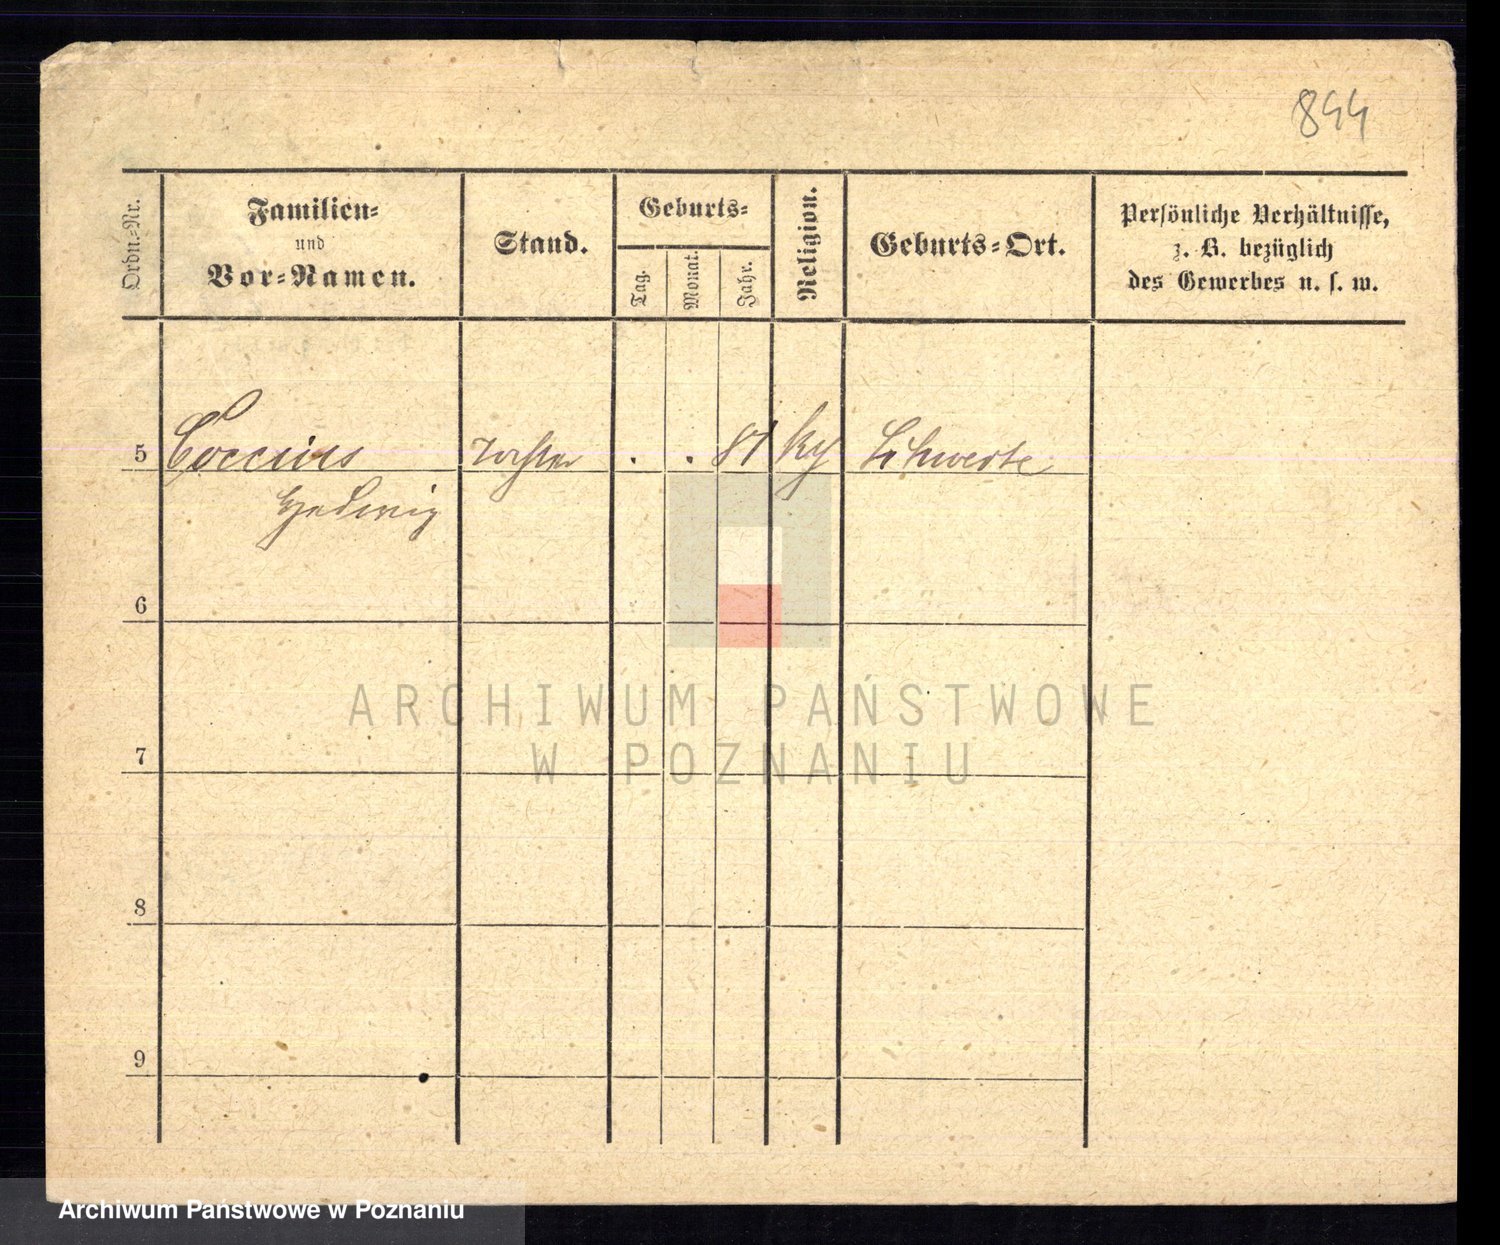 844
Ordn.-Nr.
Familien-
und
Vor-Namen.
Stand.
Geburts-
Tag.
Monat.
Jahr.
Religion.
Geburts-Ort.
Persönliche Verhältnisse,
z. B. bezüglich
des Gewerbes u. s. w.
5 Coccius Tochter . . 81 Schwerte
Hedwig
6
7
8
9
ARCHIWUM PAŃSTWOWE
W POZNANIU
Archiwum Państwowe w Poznaniu